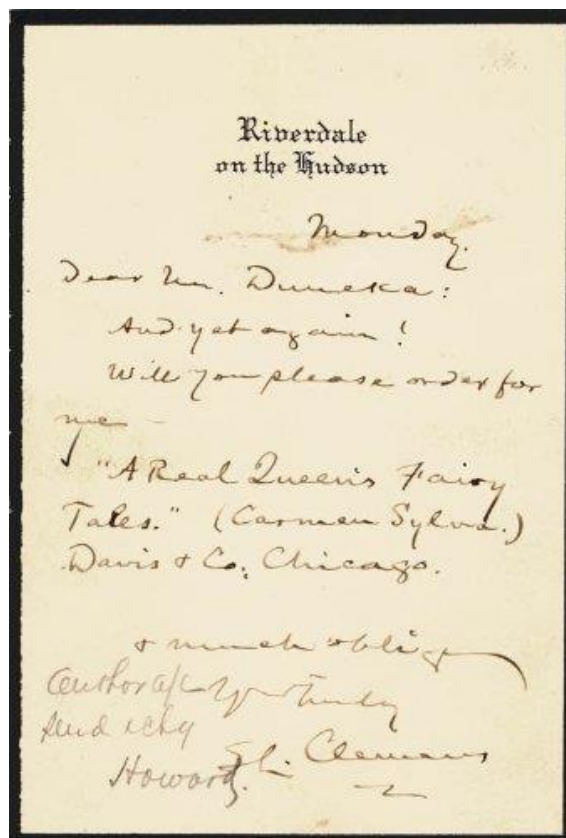 Riverdale
on the Hudson
Monday.
Dear Mr. Duneka:
And yet again!
Will you please order for
me —
"A Real Queen's Fairy
Tales." (Carmen Sylva.)
Davis & Co., Chicago.
& much oblige
Yrs Truly
SL. Clemens
Author a/c
send & chg
Howard